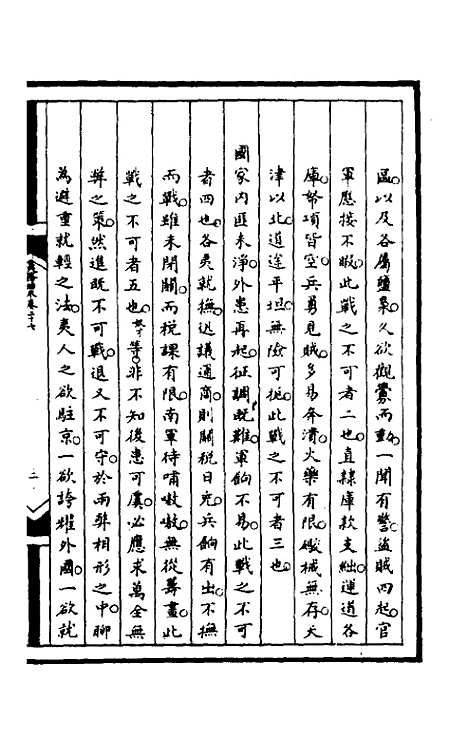 區。以及各屬鹽梟。久欲觀釁而動。一聞有警。盜賊四起。官
軍應接不暇。此戰之不可者二也。直隸庫款支絀。運道各
庫帑項皆空。兵勇見賊。多易奔潰。火藥有限。礟械無存。天
津以北。道途平坦。無險可扼。此戰之不可者三也。
國家內匪未淨。外患再起。征調既難。軍餉不易。此戰之不可
者四也。各夷就撫。迅議通商。則關稅日充。兵餉有出。不撫
而戰。雖未閉關。而稅課有限。南軍待哺嗷嗷。無從籌畫。此
戰之不可者五也。等。非不知後患可虞。必應求萬全無
弊之策。然進既不可戰。退又不可守。於兩弊相形之中。聊
為避重就輕之法。夷人之欲駐京。一欲誇耀外國。一欲就
卷二十七
二